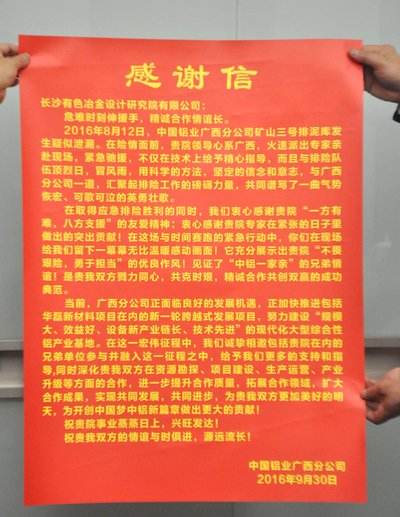 感谢信
长沙有色冶金设计研究院有限公司：
危难时刻伸援手，精诚合作情谊长。
2016年8月12日，中国铝业广西分公司矿山三号排泥库发
生疑似泄漏。在险情面前，贵院领导心系广西，火速派出专家亲
赴现场，紧急驰援，不仅在技术上给予精心指导，而且与排险队
伍顶烈日，冒风雨，用科学的方法，坚定的信念和意志，与广西
分公司一道，汇聚起排险工作的磅礴力量，共同谱写了一曲气势
恢宏、可歌可泣的英勇壮歌。
在取得应急排险胜利的同时，我们衷心感谢贵院“一方有
难，八方支援”的友爱精神；衷心感谢贵院专家在紧张的日子里
做出的突出贡献！在这场与时间赛跑的紧急行动中，你们在现场
给我们留下一幕幕无比温暖感动画面！它充分展示出贵院“不畏
艰险，勇于担当”的优良作风！见证了“中铝一家亲”的兄弟情
谊！是贵我双方戮力同心，共克时艰，精诚合作共创双赢的成功
典范。
当前，广西分公司正面临良好的发展机遇，正加快推进包括
华磊新材料项目在内的新一轮跨越式发展项目，努力建设“规模
大、效益好、设备新产业链长、技术先进”的现代化大型综合性
铝产业基地。在这一宏伟征程中，我们诚挚相邀包括贵院在内的
兄弟单位参与并融入这一征程之中，给予我们更多的支持和指
导，同时深化贵我双方在资源勘探、项目建设、生产运营、产业
升级等方面的合作，进一步提升合作质量，拓展合作领域，扩大
合作成果，实现共同发展，共同进步，为贵我双方更加美好的明
天，为开创中国梦中铝新篇章做出更大的贡献！
祝贵院事业蒸蒸日上，兴旺发达！
祝贵我双方的情谊与时俱进，源远流长！
中国铝业广西分公司
2016年9月30日